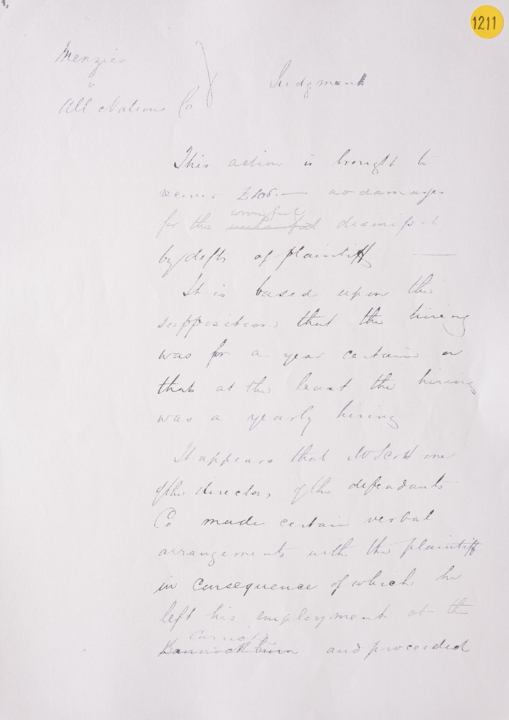 1211
Menzies
v
All Nations Co
Judgment
This action is brought to
recover £105.— as damages
for the wrongful dismissal
by defts of plaintiff —
It is based upon the
supposition that the hiring
was for a year certain or
that at the least the hiring
was a yearly hiring
It appears that Scott one
of the directors of the defendants
Co made certain verbal
arrangements with the plaintiff
in consequence of which he
left his employment at the
and proceeded